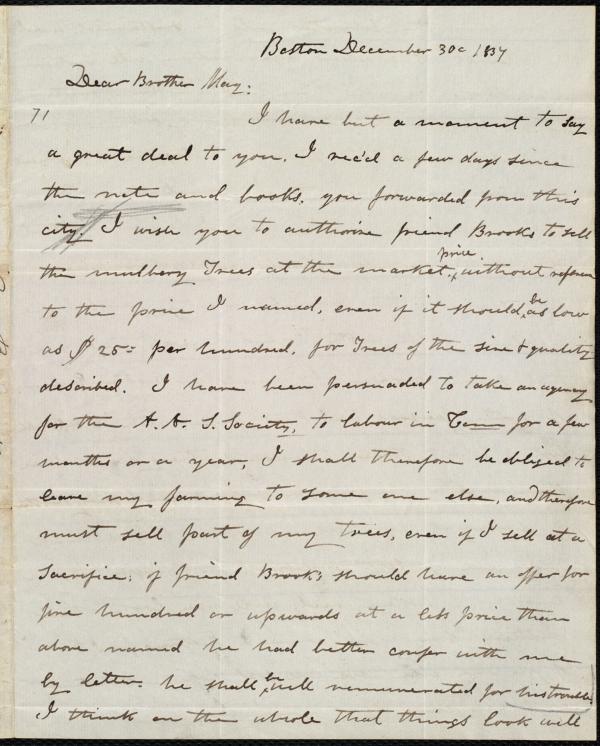 Boston December 30th 1837
Dear Brother May:
71
I have but a moment to say
a great deal to you. I rec'd a few days since
the note and books, you forwarded from this
city. I wish you to authorize friend Brooks to sell
the mulbery Trees at the market price, without reference
to the price I named, even if it should be as low
as $25= per hundred, for Trees of the size & quality
described. I have been persuaded to take an agency
for the A. A. S. Society, to labour in Conn for a few
months or a year, I shall therefore be obliged to
leave my farming to some one else, and therefore
must sell part of my trees, even if I sell at a
Sacrifice; if friend Brooks should have an offer for
five hundred or upwards at a less price than
above named he had better confer with me
by letter. he shall be well remunerated for his trouble.
I think on the whole that things look well